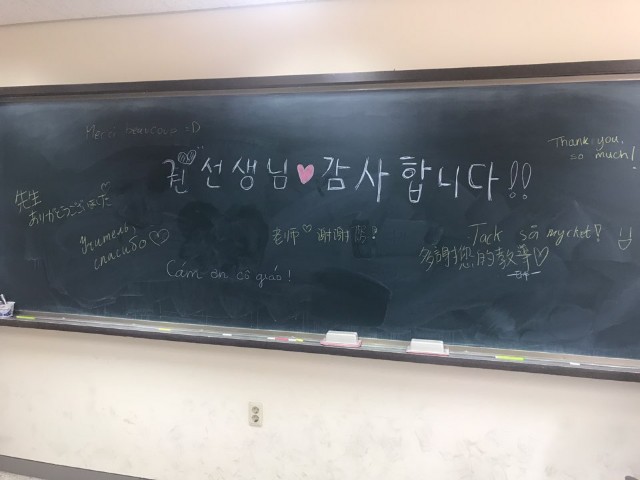 Merci beaucoup :D
Thank you,
so much!
권선생님♥감사합니다!!
先生
ありがとうございました
учитель,
спасибо ♡
老师♡ 谢谢您!
Tack så mycket! :)
多謝您的教導♡
Cám ơn cô giáo!